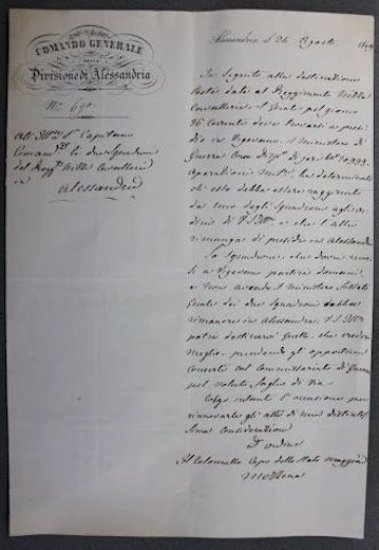 COMANDO GENERALE
DELLA
Divisione di Alessandria
N.° 690
All' Ill.mo S.r Capitano
Comand.te li due Squadroni
del Regg.to Aosta Cavalleria
in
Alessandria
Alessandria, il 26 Agosto 1849
In seguito alla destinazione
stata data al Reggimento Aosta
Cavalleria, il quale pel giorno
26 corrente deve trovarsi a presi
dio in Vigevano, il Ministero di
Guerra con
Operazioni Mil.ri ha determinato
che esso debba essere raggiunto
da uno degli Squadroni agli or
dini di V.S. Ill.ma e che l'altro
rimanga di presidio in Alessandria
Lo Squadrone, che dovrà recar
si a Vigevano partirà domani,
e non avendo il Ministero fissato
quale dei due Squadroni debba
rimanere in Alessandria V.S. Ill.ma
potrà destinarvi quello, che crederà
meglio, prendendo gli opportuni
concerti col Commissariato di Guerra
pel voluto foglio di via.
Colgo intanto l'occasione per
rinnovarle gli atti di mia distintis
sima considerazione
D'ordine
Il Colonnello Capo dello Stato Maggiore